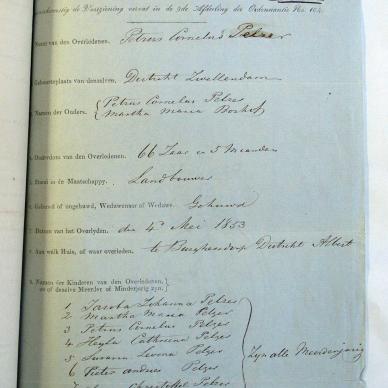 overeenkomstig de Voorziening vervat in de 3de Afdeeling der Ordonnantie No. 104.
Naam van den Overledenen. Petrus Cornelus Pelzer
Geboorteplaats van denzelven. Distrikt Zwellendam
Namen der Ouders. { Petrus Cornelus Pelzer
Martha Maria Boshof
Ouderdom van den Overledenen. 66 Jaar en 5 Maanden
Stand in de Maatschappy. Landbouwer
Gehuwd of ongehuwd, Weduwenaar of Weduwe. Gehuwd
Datum van het Overlyden. den 4e Mei 1853
Aan welk Huis, of waar overleden. te Burghersdorp District Albert
Namen der Kinderen van den Overledenen,
of dezelve Meerder of Minderjarig zyn.
1 Jacoba Johanna Pelzer
2 Martha Maria Pelzer
3 Petrus Cornelus Pelzer
4 Heyla Cathrina Pelzer
5 Susara Pelzer
6 Pieter Andries Pelzer
Christoffel Pelzer
Zyn alle Meerderjarig